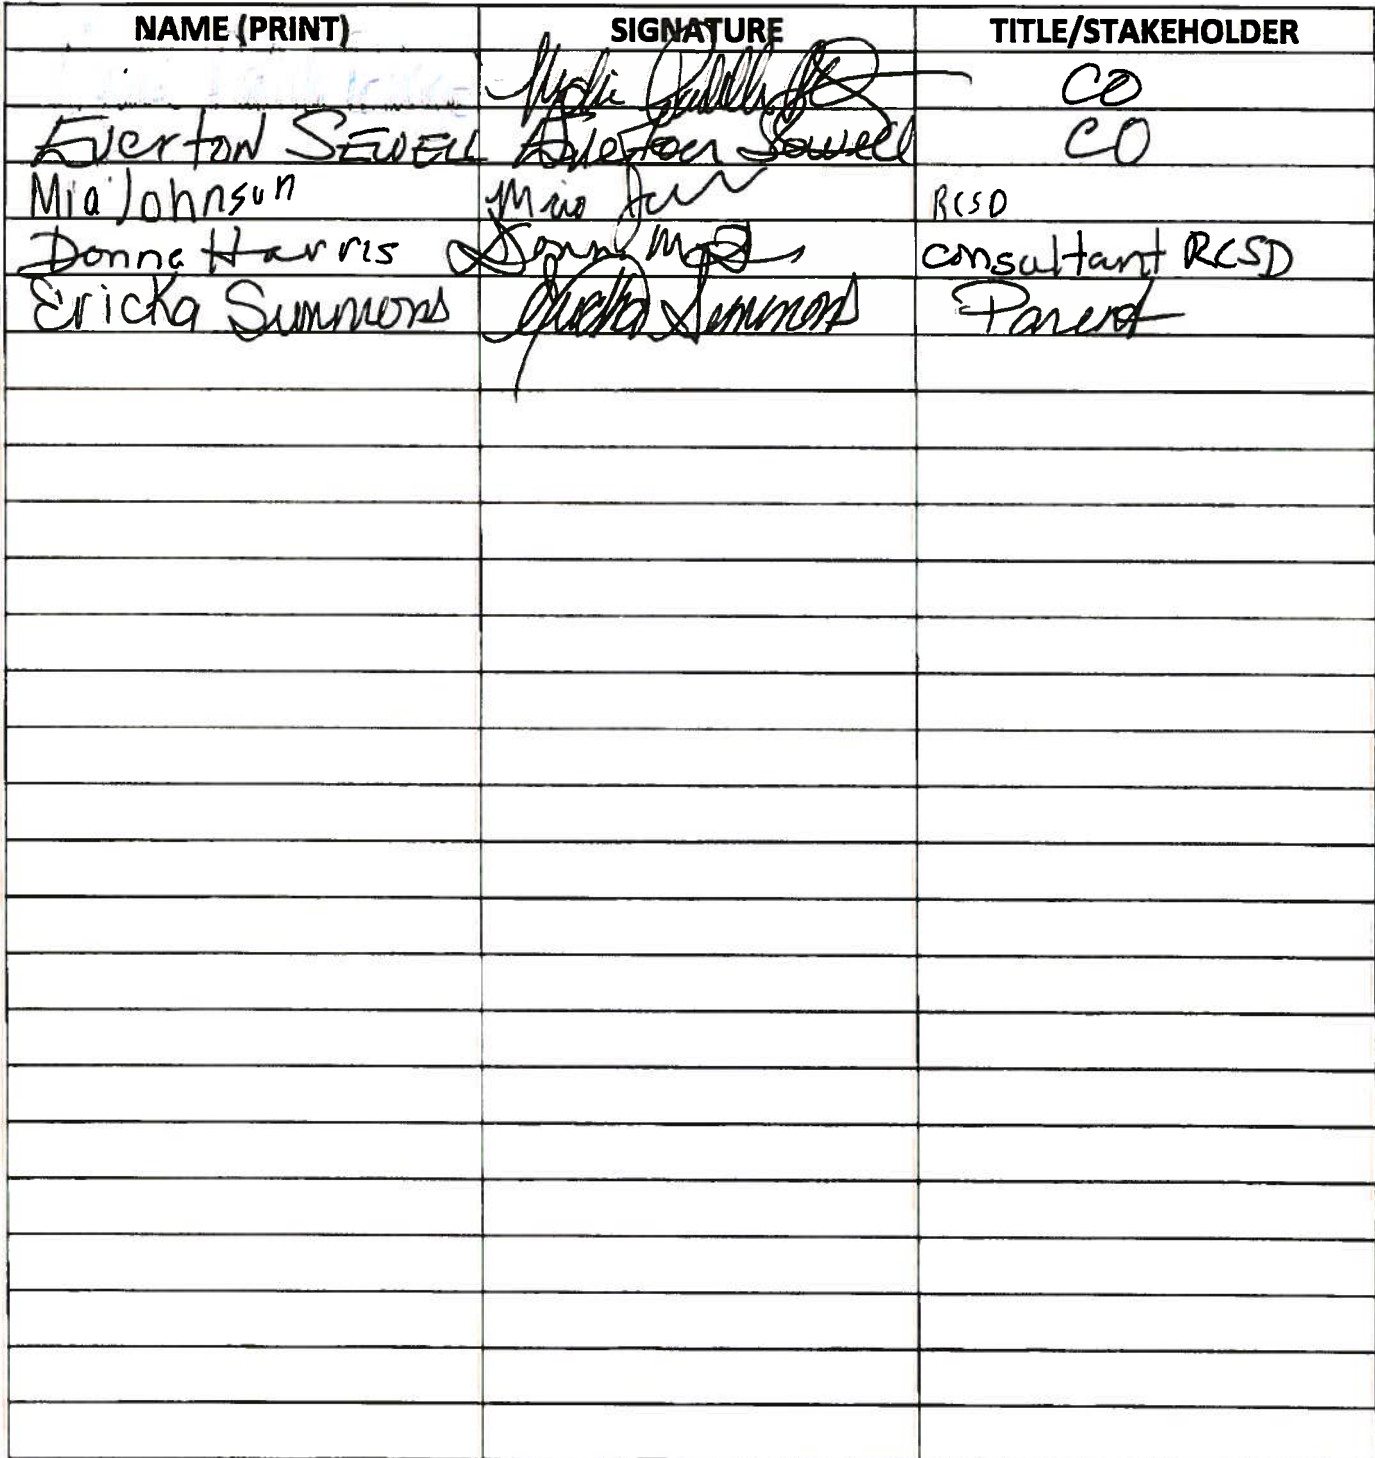 NAME (PRINT) SIGNATURE TITLE/STAKEHOLDER
CO
Everton SEWELL Everton Sewell CO
Mia Johnson Mia RCSD
Donna Harris Donna consultant RCSD
Ericka Simmons Ericka Simmons Parent